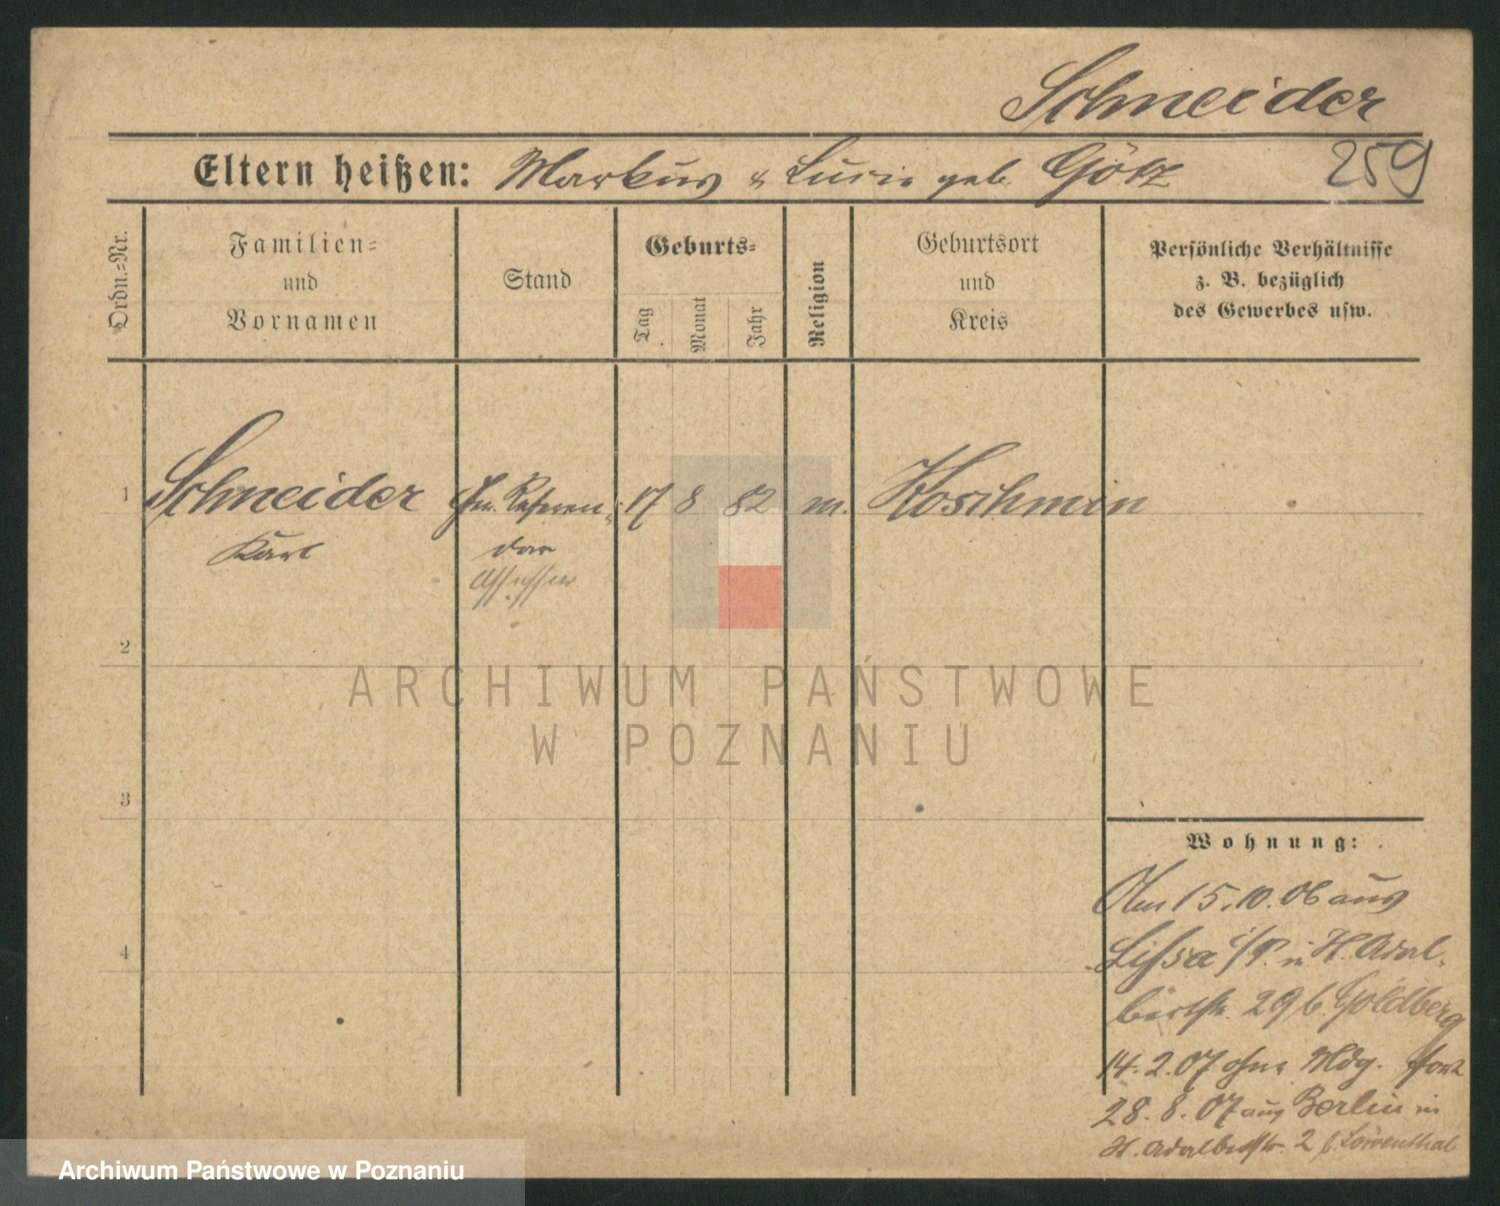 Schneider
Eltern heißen: Markus & Lucie geb. Götz 259
Ordn.=Nr.
Familien=
und
Vornamen
Stand
Geburts=
Tag
Monat
Jahr
Religion
Geburtsort
und
Kreis
Persönliche Verhältnisse
z. B. bezüglich
des Gewerbes usw.
1 Schneider Referen= 17 8 82 m. Koschmin
Karl dar
Assessor
2
3
4
Wohnung:
Am 15.10.06 aus
Lissa i/P. in H. Adal-
bertstr. 29 b Goldberg
14.2.07 ohne Mdg. fort
28.8.07 aus Berlin in
H. Adalbertstr. 2 b. Löwenthal
ARCHIWUM PAŃSTWOWE
W POZNANIU
Archiwum Państwowe w Poznaniu